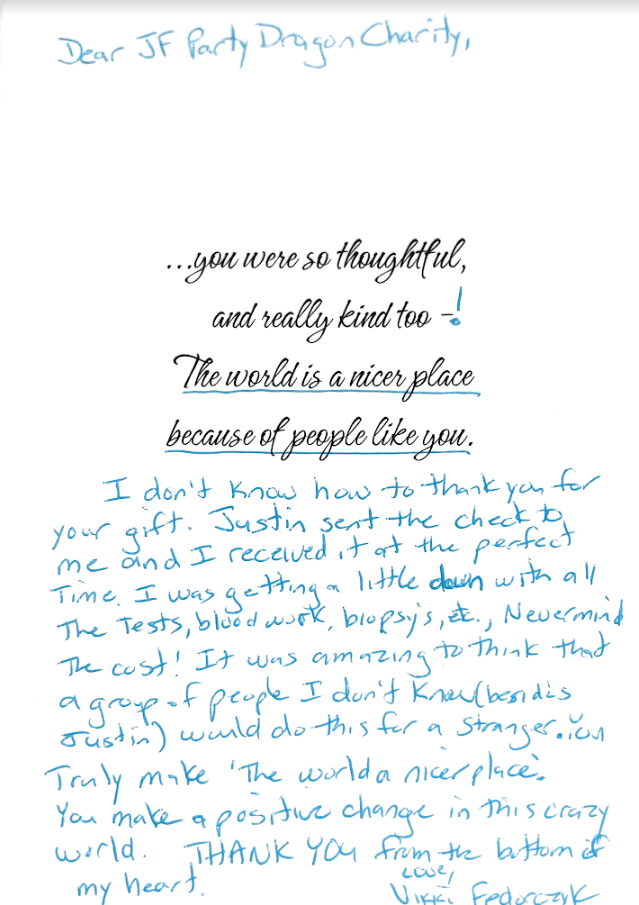 Dear JF Party Dragon Charity,
...you were so thoughtful,
and really kind too -!
The world is a nicer place
because of people like you.
I don't know how to thank you for
your gift. Justin sent the check to
me and I received it at the perfect
Time. I was getting a little down with all
The Tests, blood work, biopsy's, etc., Nevermind
The cost! It was amazing to think that
a group of people I don't know (besides
Justin) would do this for a stranger. You
Truly make 'The world a nicer place'.
You make a positive change in this crazy
world. THANK YOU from the bottom of
my heart.
Love,
Vikki Fedorczyk